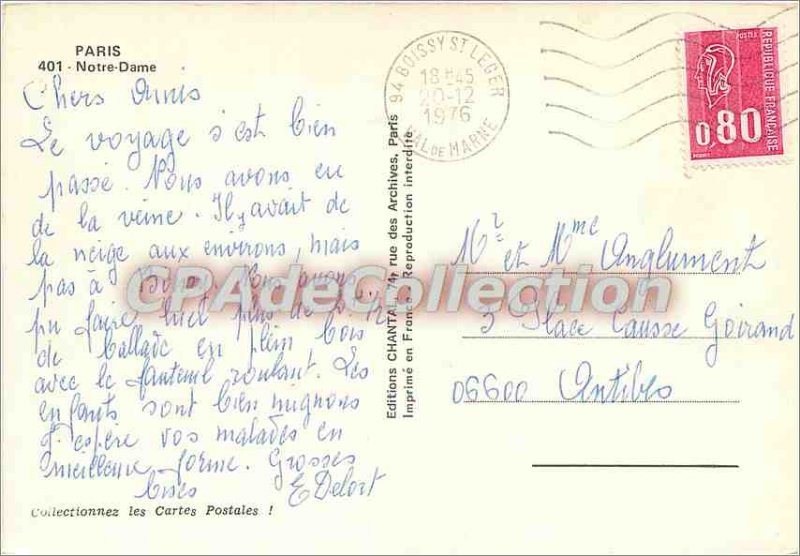 PARIS
401 - Notre-Dame
Chers Amis
Le voyage s'est bien
passé. Nous avons eu
de la veine. Il y avait de
la neige aux environs, mais
pas à Nous avons
pu faire plus de
de ballade en plein bois
avec le fauteuil roulant. Les
enfants sont bien mignons
J'espère vos malades en
meilleure forme. Grosses
bises E Delort
Collectionnez les Cartes Postales !
Editions CHANTAL, 74, rue des Archives, Paris
Imprimé en France - Reproduction interdite
94 BOISSY ST LEGER
18H45
20-12
1976
VAL DE MARNE
POSTES
REPUBLIQUE FRANÇAISE
0,80
Mr et Mme Anglument
3 Place Causse Goirand
06600 Antibes
CPAdeCollection